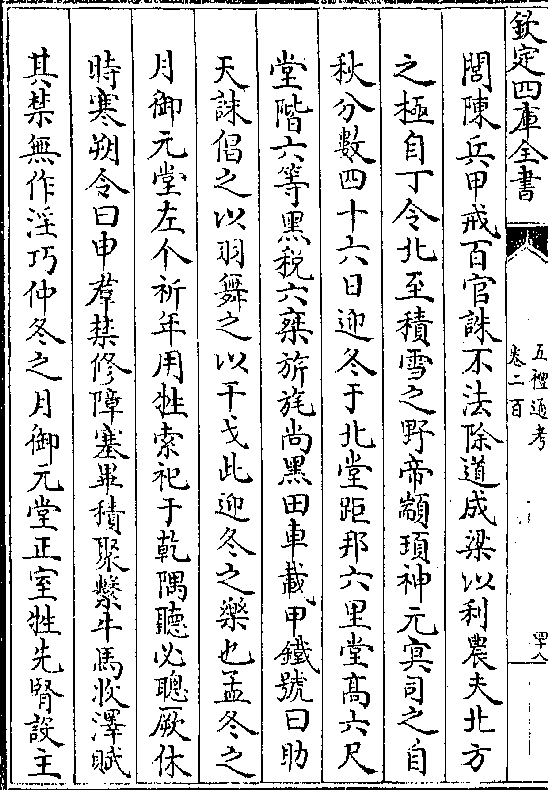 欽定四庫全書
五禮通考
卷二百
閭陳兵甲戒百官誅不法除道成梁以利農夫北方
之極自丁令北至積雪之野帝顓頊神元冥司之自
秋分數四十六日迎冬于北堂距邦六里堂高六尺
堂階六等黑税六椉旂旄尚黑田車載甲鐵號曰助
天誅倡之以羽舞之以干戈此迎冬之樂也孟冬之
月御元堂左个祈年用牲索祀于乾隅聽必聰厥休
時寒朔令曰申羣禁修障塞畢積聚繫牛馬收澤賦
其禁無作淫巧仲冬之月御元堂正室牲先腎設主